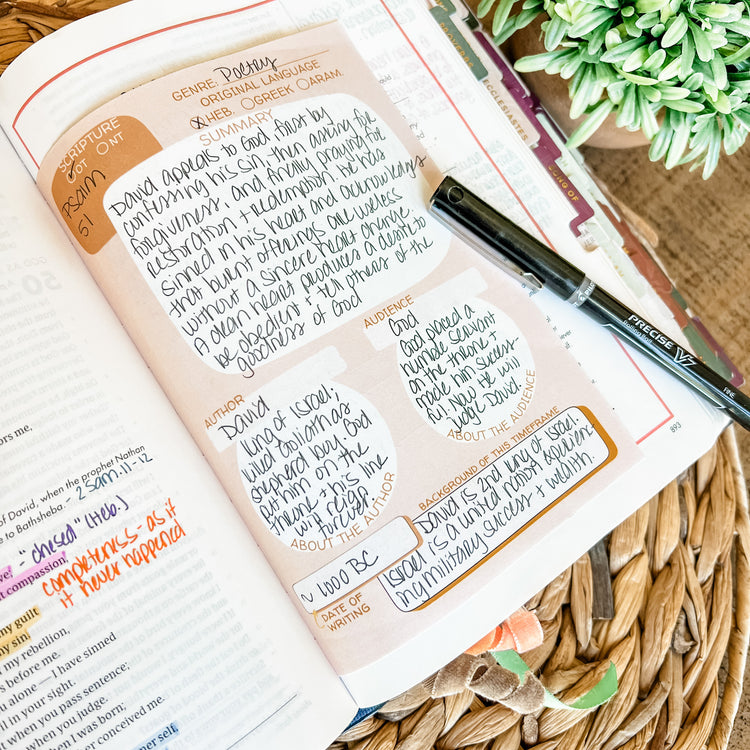 GENRE: Poetry
ORIGINAL LANGUAGE
HEB. GREEK ARAM.
SCRIPTURE
OT NT
Psalm
51
SUMMARY
David appeals to God first by
confessing his sin, then asking for
forgiveness, and finally praying for
restoration + redemption. He has
sinned in his heart and acknowledges
that burnt offerings are useless
without a sincere heart change.
A clean heart produces a desire to
be obedient + tell others of the
goodness of God
AUTHOR
David
King of Israel,
killed Goliath as
shepherd boy. God
put him on the
throne + his line
will reign
forever.
ABOUT THE AUTHOR
AUDIENCE
God
God placed a
humble servant
on the throne +
made him success-
ful. Now He will
judge David
ABOUT THE AUDIENCE
BACKGROUND OF THIS TIMEFRAME
David is 2nd king of Israel.
Israel is a united nation experienc-
ing military success + wealth.
~ 1000 BC
DATE OF
WRITING
PRECISE V7
Rolling Ball
FINE
PILOT
893
ECCLESIASTES
SONG OF
ors me,
of David, when the prophet Nathan
e to Bathsheba. - 2 Sam. 11-12
ve, - "chesed" (Heb.)
t compassion, completeness - as if
it never happened
my guilt
my sin.
my rebellion,
s before me.
u alone — I have sinned
il in your sight.
when you pass sentence;
when you judge.
hen I was born;
er conceived me.
ner self,